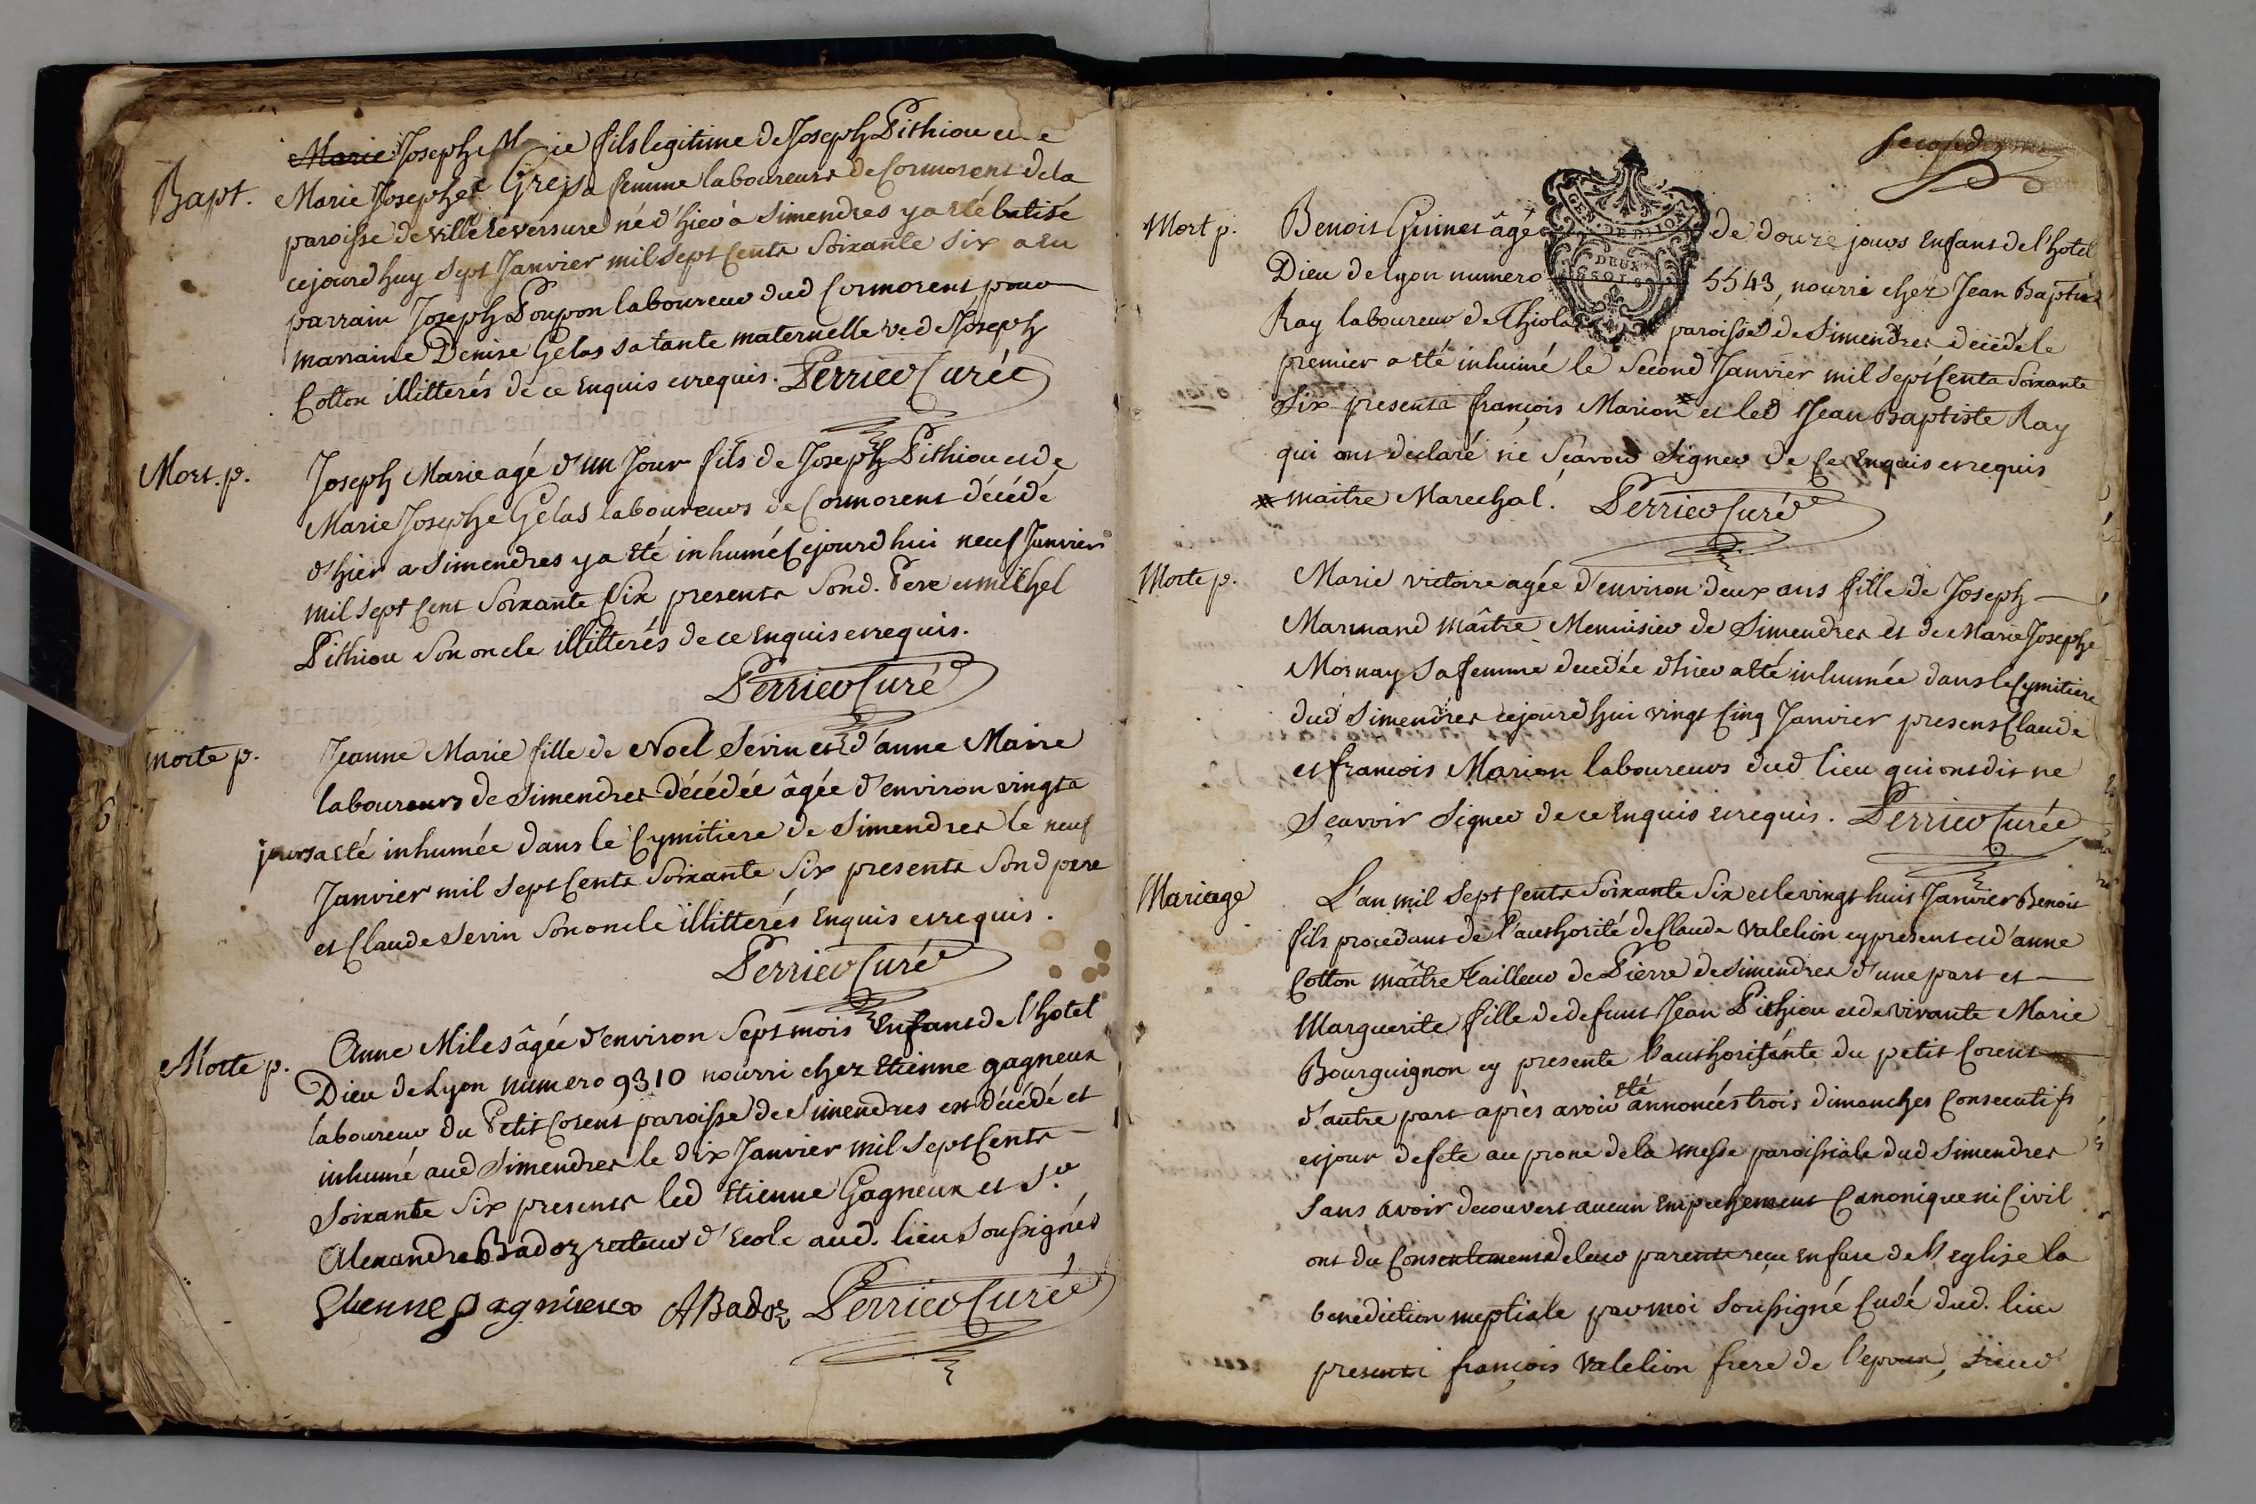 Bapt.
Marie Joseph Marie fils legitime de Joseph Pithiou et de
Marie Josephe sa femme laboureurs de Cormorent de la
paroisse de villereversure né d'hier à Simendres y a eté batisé
cejourdhuy sept Janvier mil sept Cents Soixante Six a Eu
parrain Joseph Poupon laboureur dud Cormorent pour
marraine Denise Gelas sa tante maternelle ve. de Joseph
Cotton illitterés de ce Enquis et requis. Perrier Curé
Mort. p.
Joseph Marie agé d'un Jour fils de Joseph Pithiou et de
Marie Josephe Gelas laboureurs de Cormorent décédé
d'hier a Simendres y a Eté inhumé Cejourdhui neuf Janvier
mil sept Cent Soixante Six presents Sond. Pere et michel
Pithiou Son oncle illitterés de ce Enquis et requis.
Perrier Curé
morte p.
Jeanne Marie fille de Noel Sevin et d'anne Maire
laboureurs de Simendres décédée âgée d'environ vingts
jours a eté inhumée dans le Cymitiere de Simendres le neuf
Janvier mil Sept Cents Soixante Six presents Sond pere
et Claude Sevin Son oncle illitterés Enquis et requis.
Perrier Curé
Morte p.
Anne Miles âgée d'environ Sept mois Enfant de l'hotel
Dieu de Lyon numero 9310 nourri chez Etienne gagneux
laboureur du Petit Corent paroisse de Simendres est décédé et
inhumé aud Simendres le dix Janvier mil Sept Cents
Soixante Six presents led Etienne Gagneux et Sr.
Alexandre Badoz recteur d'Ecole aud. lieu Soussignés
Etienne gagnieux ABadoz Perrier Curé
second
Mort p.
Benoit Guinet âgé de douze jours Enfant de l'hotel
GEN DE DIJON
DEUX
SOLS
Dieu de Lyon numero 5543, nourri chez Jean Baptiste
Ray laboureur de Thiola paroisse de Simendres décédé le
premier a eté inhumé le Second Janvier mil Sept Cents Soixante
Six presents françois Marion * et led Jean Baptiste Ray
qui ont declaré ne Scavoir Signer de Ce Enquis et requis
* maitre Marechal. Perrier Curé
Morte p.
Marie victoire agée d'environ deux ans fille de Joseph
Marmand Maître Menuisier de Simendres et de Marie Josephe
Mornay Sa femme decedée d'hier a eté inhumée dans le Cymitiere
dud Simendres cejourdhui vingt Cinq Janvier presents Claude
et françois Marion laboureurs dud lieu qui ont dit ne
Sçavoir Signer de ce Enquis et requis. Perrier Curé
Mariage
L'an mil Sept Cents Soixante Six et le vingt huit Janvier Benoit
fils procedant de l'authorité de Claude Valelion cy present et d'anne
Cotton maître Tailleur de Pierre de Simendres d'une part et
Marguerite fille de defunt Jean Pithiou et de vivante Marie
Bourguignon cy presente l'authorisante du petit Corent
d'autre part après avoir eté annoncés trois dimanches Consecutifs
et jour de fete au prone de la Messe paroissiale dud Simendres
Sans avoir decouvert aucun Empechement Canonique ni Civil
ont du Consentement de leur parents reçu en face de l'Eglise la
benediction nuptiale par moi Soussigné Curé dud. lieu
presents françois Valelion frere de l'epoux, Sieur